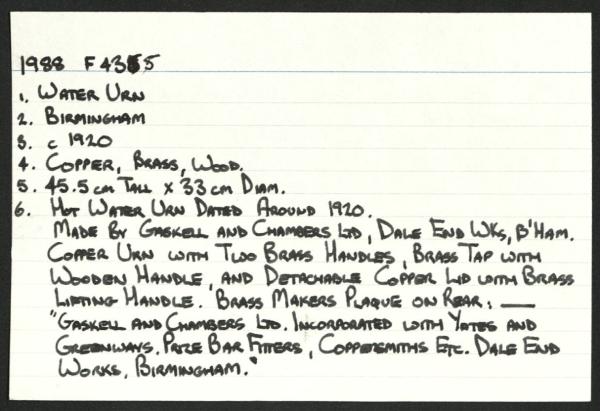 1988 F4355
1. Water Urn
2. Birmingham
3. c 1920
4. Copper, Brass, Wood.
5. 45.5 cm Tall x 33 cm Diam.
6. Hot Water Urn Dated Around 1920.
Made By Gaskell and Chambers Ltd, Dale End Wks, B'Ham.
Copper Urn with Two Brass Handles, Brass Tap with
Wooden Handle, and Detachable Copper Lid with Brass
Lifting Handle. Brass Makers Plaque on Rear: —
"Gaskell and Chambers Ltd. Incorporated with Yates and
Greenways. Prize Bar Fitters, Coppersmiths Etc. Dale End
Works, Birmingham."